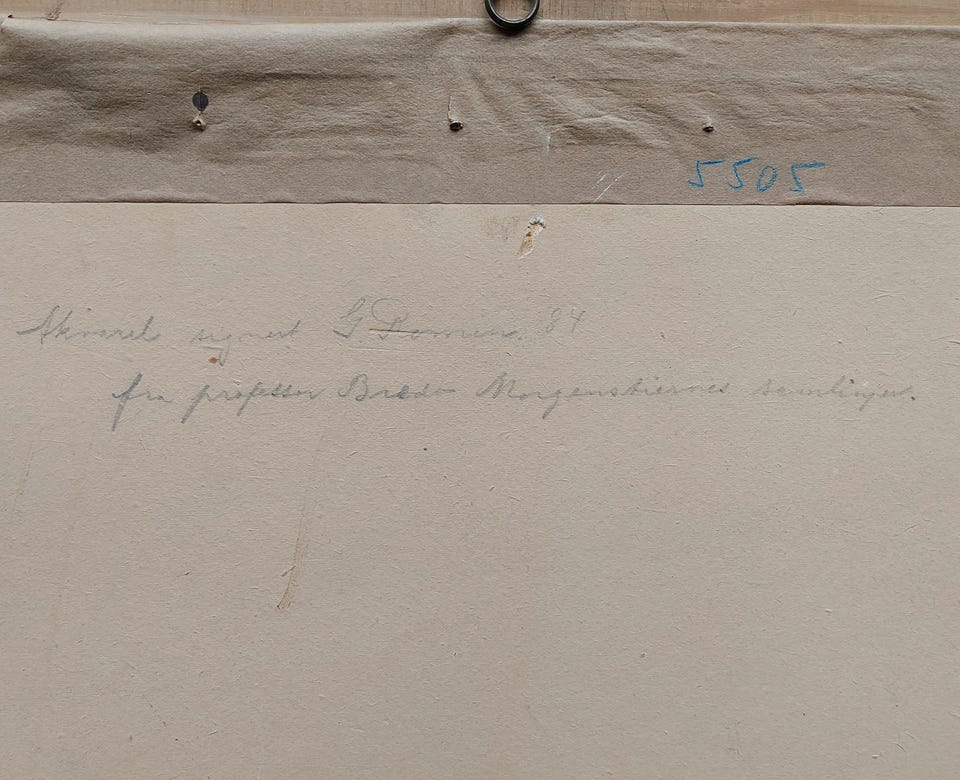 5505
Akvarel signert G. Romin. 84
fra professor Bredo Morgenstiernes samlinger.